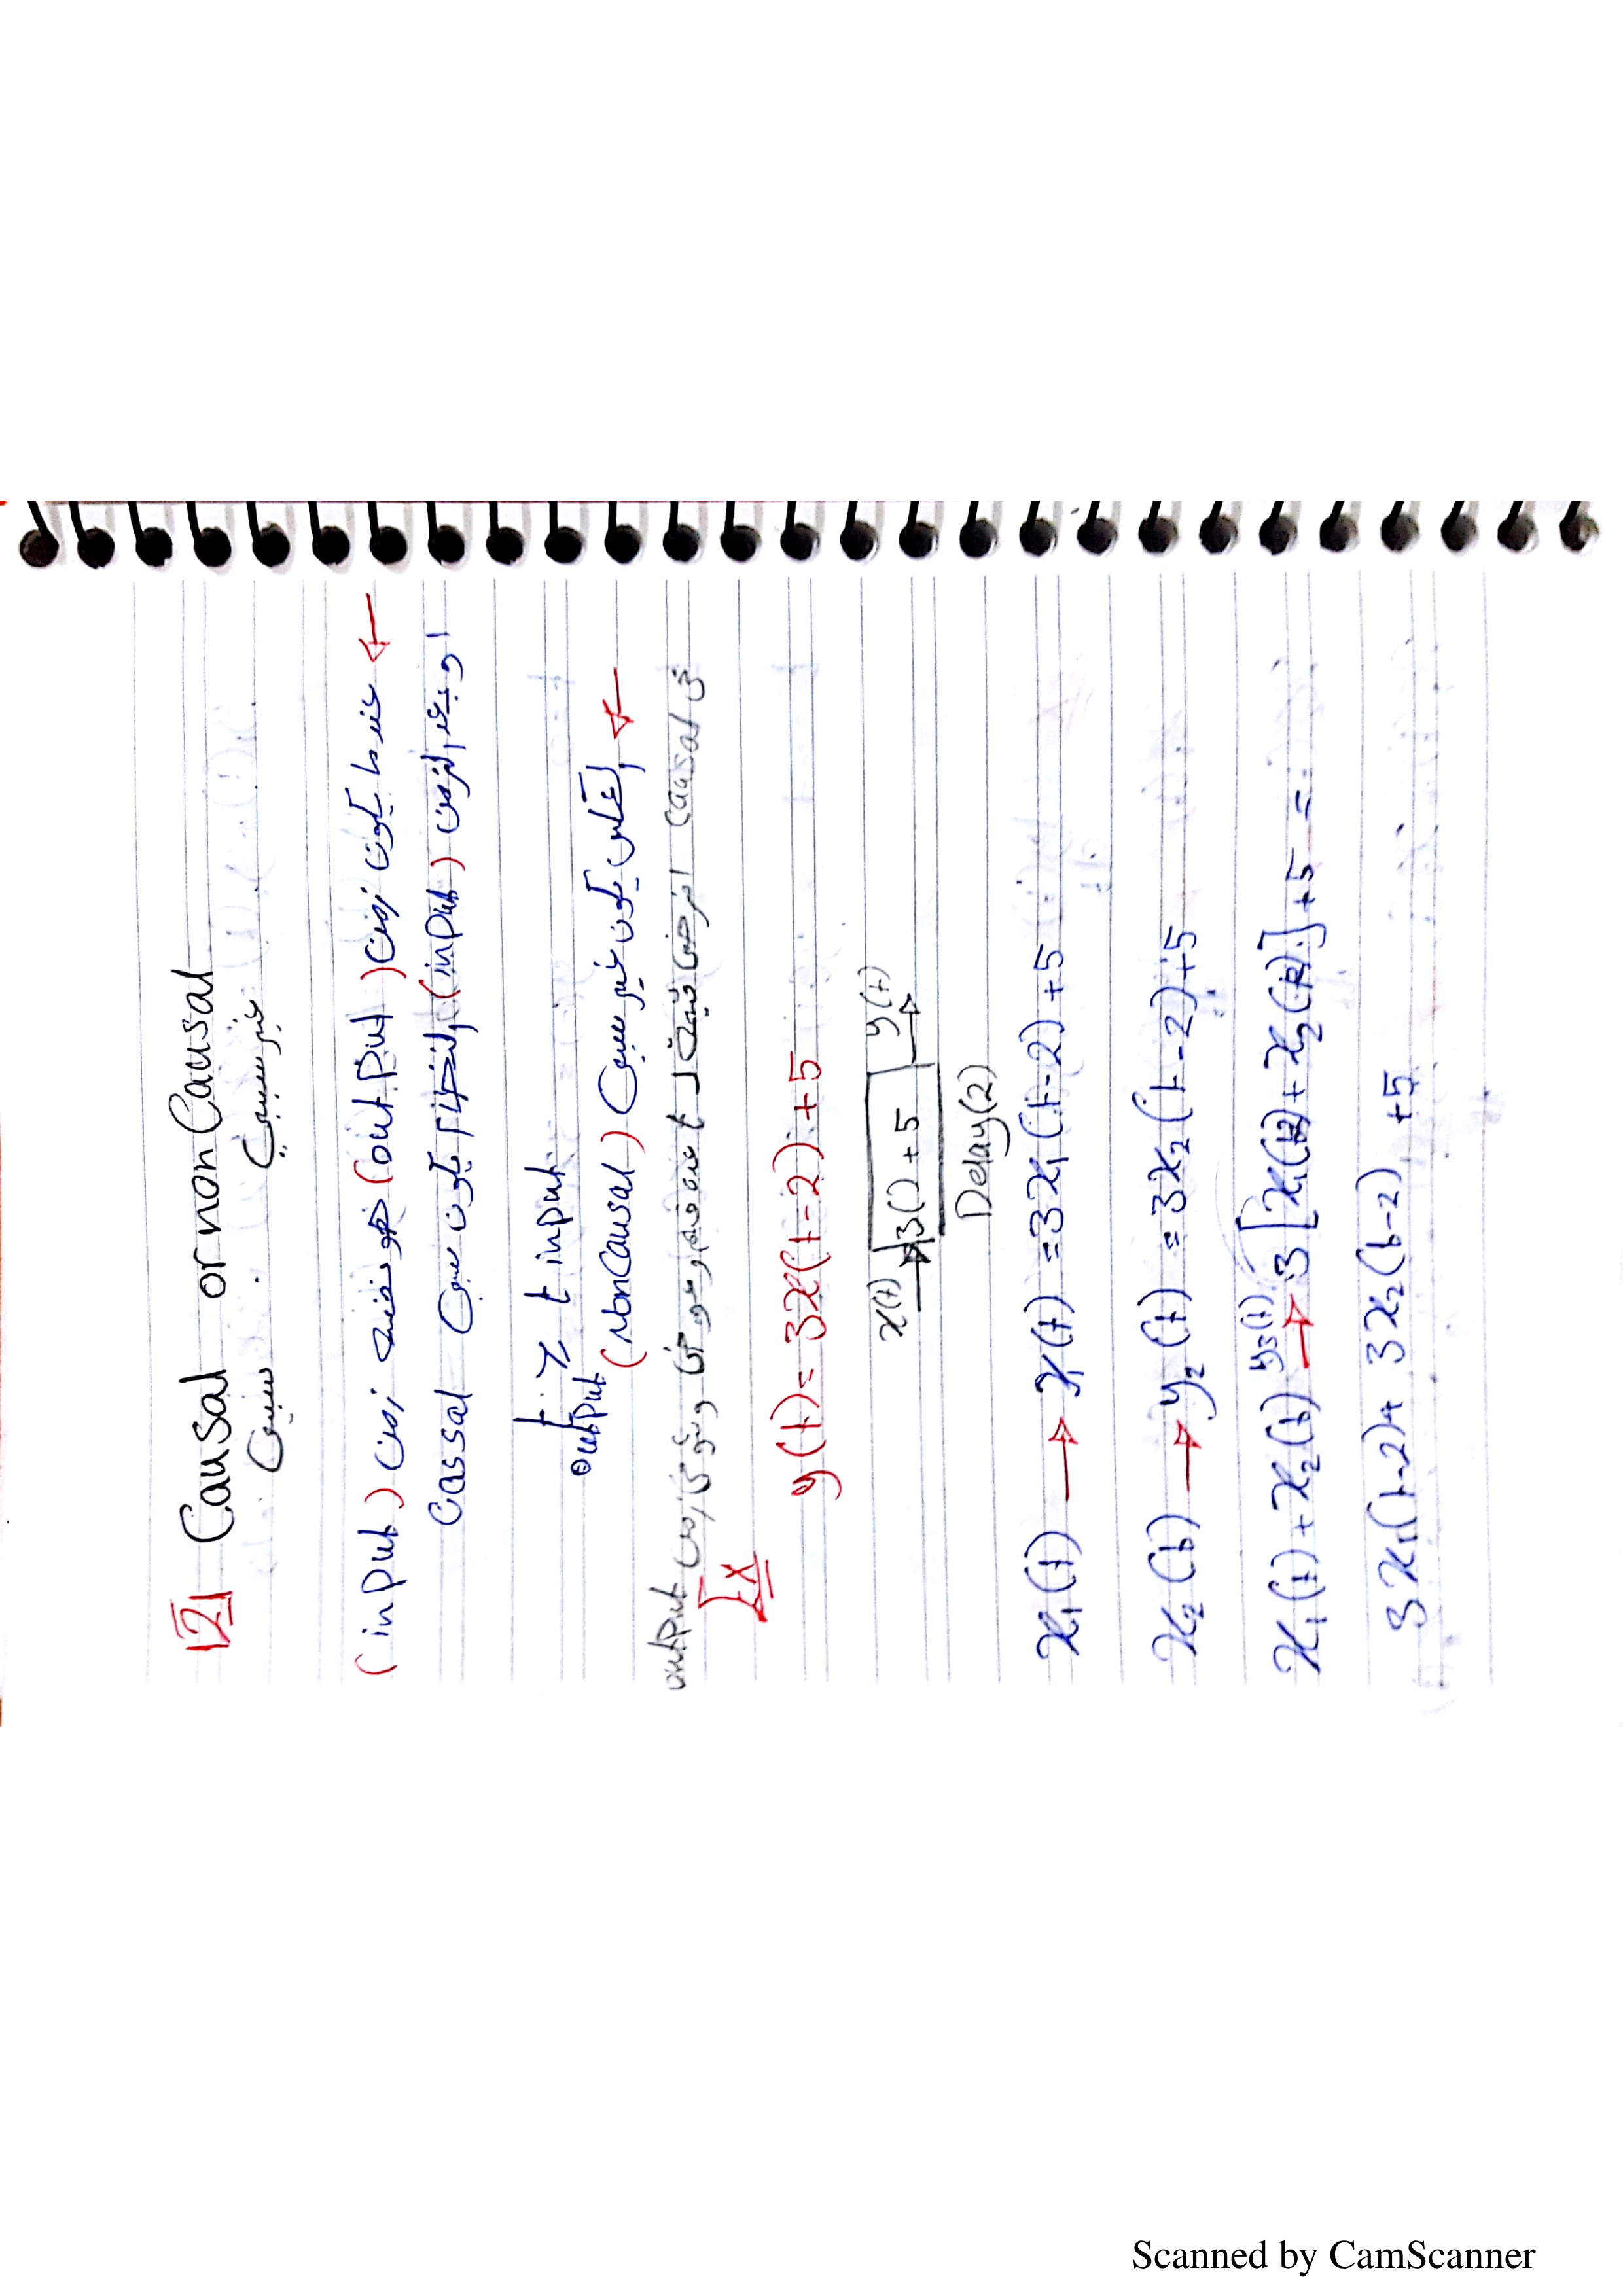 [2] Causal or nonCausal
سببي غير سببي
← عندما يكون زمن (output) هو نفسه زمن (input)
او بعد الزمن (input) النظام يكون سببي Cassal
t output ≥ t input
← العكس يكون غير سببي (nonCausal)
في causal افرض قيمة لـ t عدد وعوض وشوف زمن output
Ex
y(t) = 3x(t-2)+5
x(t) 3()+5 y(t)
Delay(2)
x₁(t) → x(t) = 3x₁(t-2)+5
x₂(t) → y₂(t) = 3x₂(t-2)+5
x₁(t)+x₂(t) y₃(t) → 3[x₁(t)+x₂(t)]+5 =
3x₁(t-2)+ 3x₂(t-2) +5
Scanned by CamScanner